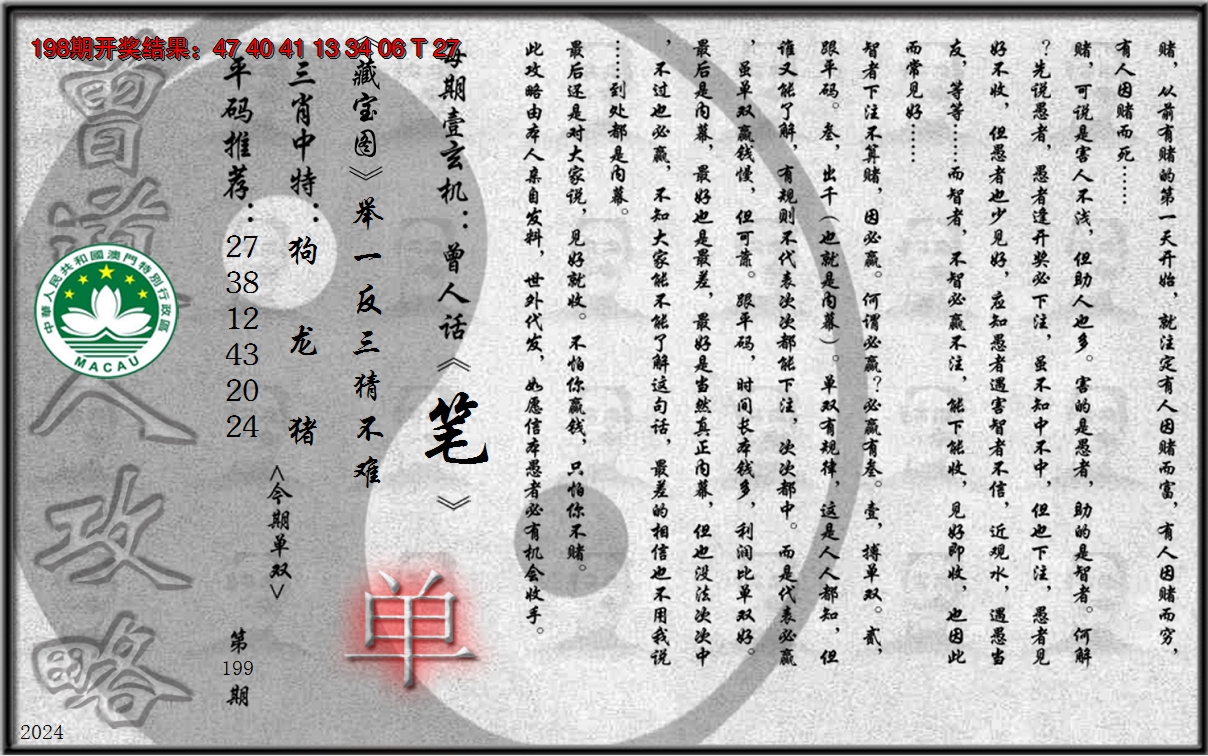 198期开奖结果：47 40 41 13 34 06 T 27
赌，从前有赌的第一天开始，就注定有人因赌而富，有人因赌而穷，
有人因赌而死……
赌，可说是害人不浅，但助人也多。害的是愚者，助的是智者。何解
？先说愚者，愚者逢开奖必下注，虽不知中不中，但也下注，愚者见
好不收，但愚者也少见好，应知愚者遇害智者不信，近观水，遇愚当
友，等等……而智者，不智必赢不注，能下能收，见好即收，也因此
而常见好……
智者下注不算赌，因必赢。何谓必赢？必赢有叁。壹，搏单双。贰，
跟平码。叁，出千（也就是内幕）。单双有规律，这是人人都知，但
谁又能了解，有规则不代表次次都能下注，次次都中。而是代表必赢
，虽单双赢钱慢，但可靠。跟平码，时间长本钱多，利润比单双好。
最后是内幕，最好也是最差，最好是当然真正内幕，但也没法次次中
，不过也必赢，不知大家能不能了解这句话，最差的相信也不用我说
……到处都是内幕。
最后还是对大家说，见好就收。不怕你赢钱，只怕你不赌。
此攻略由本人亲自发料，世外代发，如愿信本愚者必有机会收手。
每期壹玄机：曾人话《笔》
《藏宝图》举一反三猜不难
单
三肖中特：狗 龙 猪
<今期单双>
平码推荐：
27
38
12
43
20
24
第
199
期
曾道人攻略
中華人民共和國澳門特別行政區
MACAU
2024